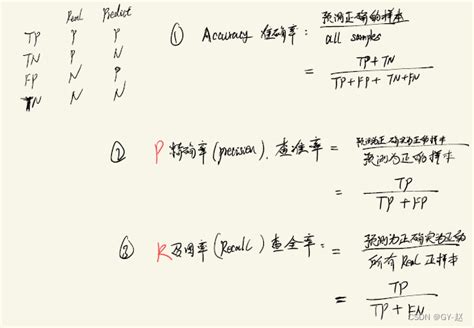 Real Predict
TP P P
TN P N
FP N P
TN N N
① Accuracy 准确率: 预测正确的样本
all samples
= TP+TN
TP+FP+TN+FN
② P 精确率(precision), 查准率 = 预测为正确实为正的样本
预测为正的样本
= TP
TP+FP
③ R 召回率(Recall) 查全率: = 预测为正确实为正的
所有 Real 正样本
= TP
TP+FN
CSDN @GY-赵